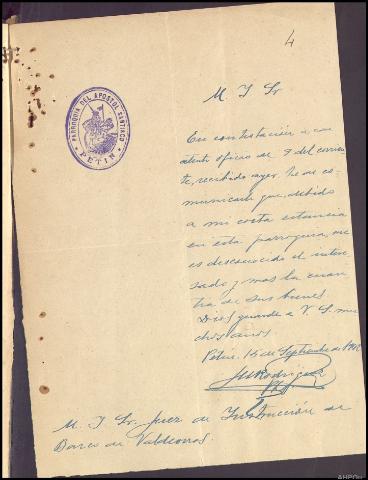 4
PARROQUIA DEL APOSTOL SANTIAGO
PETIN
M. I. Sr.
En contestación a su
atento oficio de 9 del corrien-
te, recibido ayer, he de co-
municarle que, debido
a mi corta estancia
en esta parroquia, me
es desconocido el intere-
sado y mas la cuan-
tia de sus bienes.
Dios guarde a V. S. mu-
chos años.
Petin, 15 de Septiembre de
M. I. Sr. Juez de Instrucción de
Barco de Valdeorras.
AHPOU